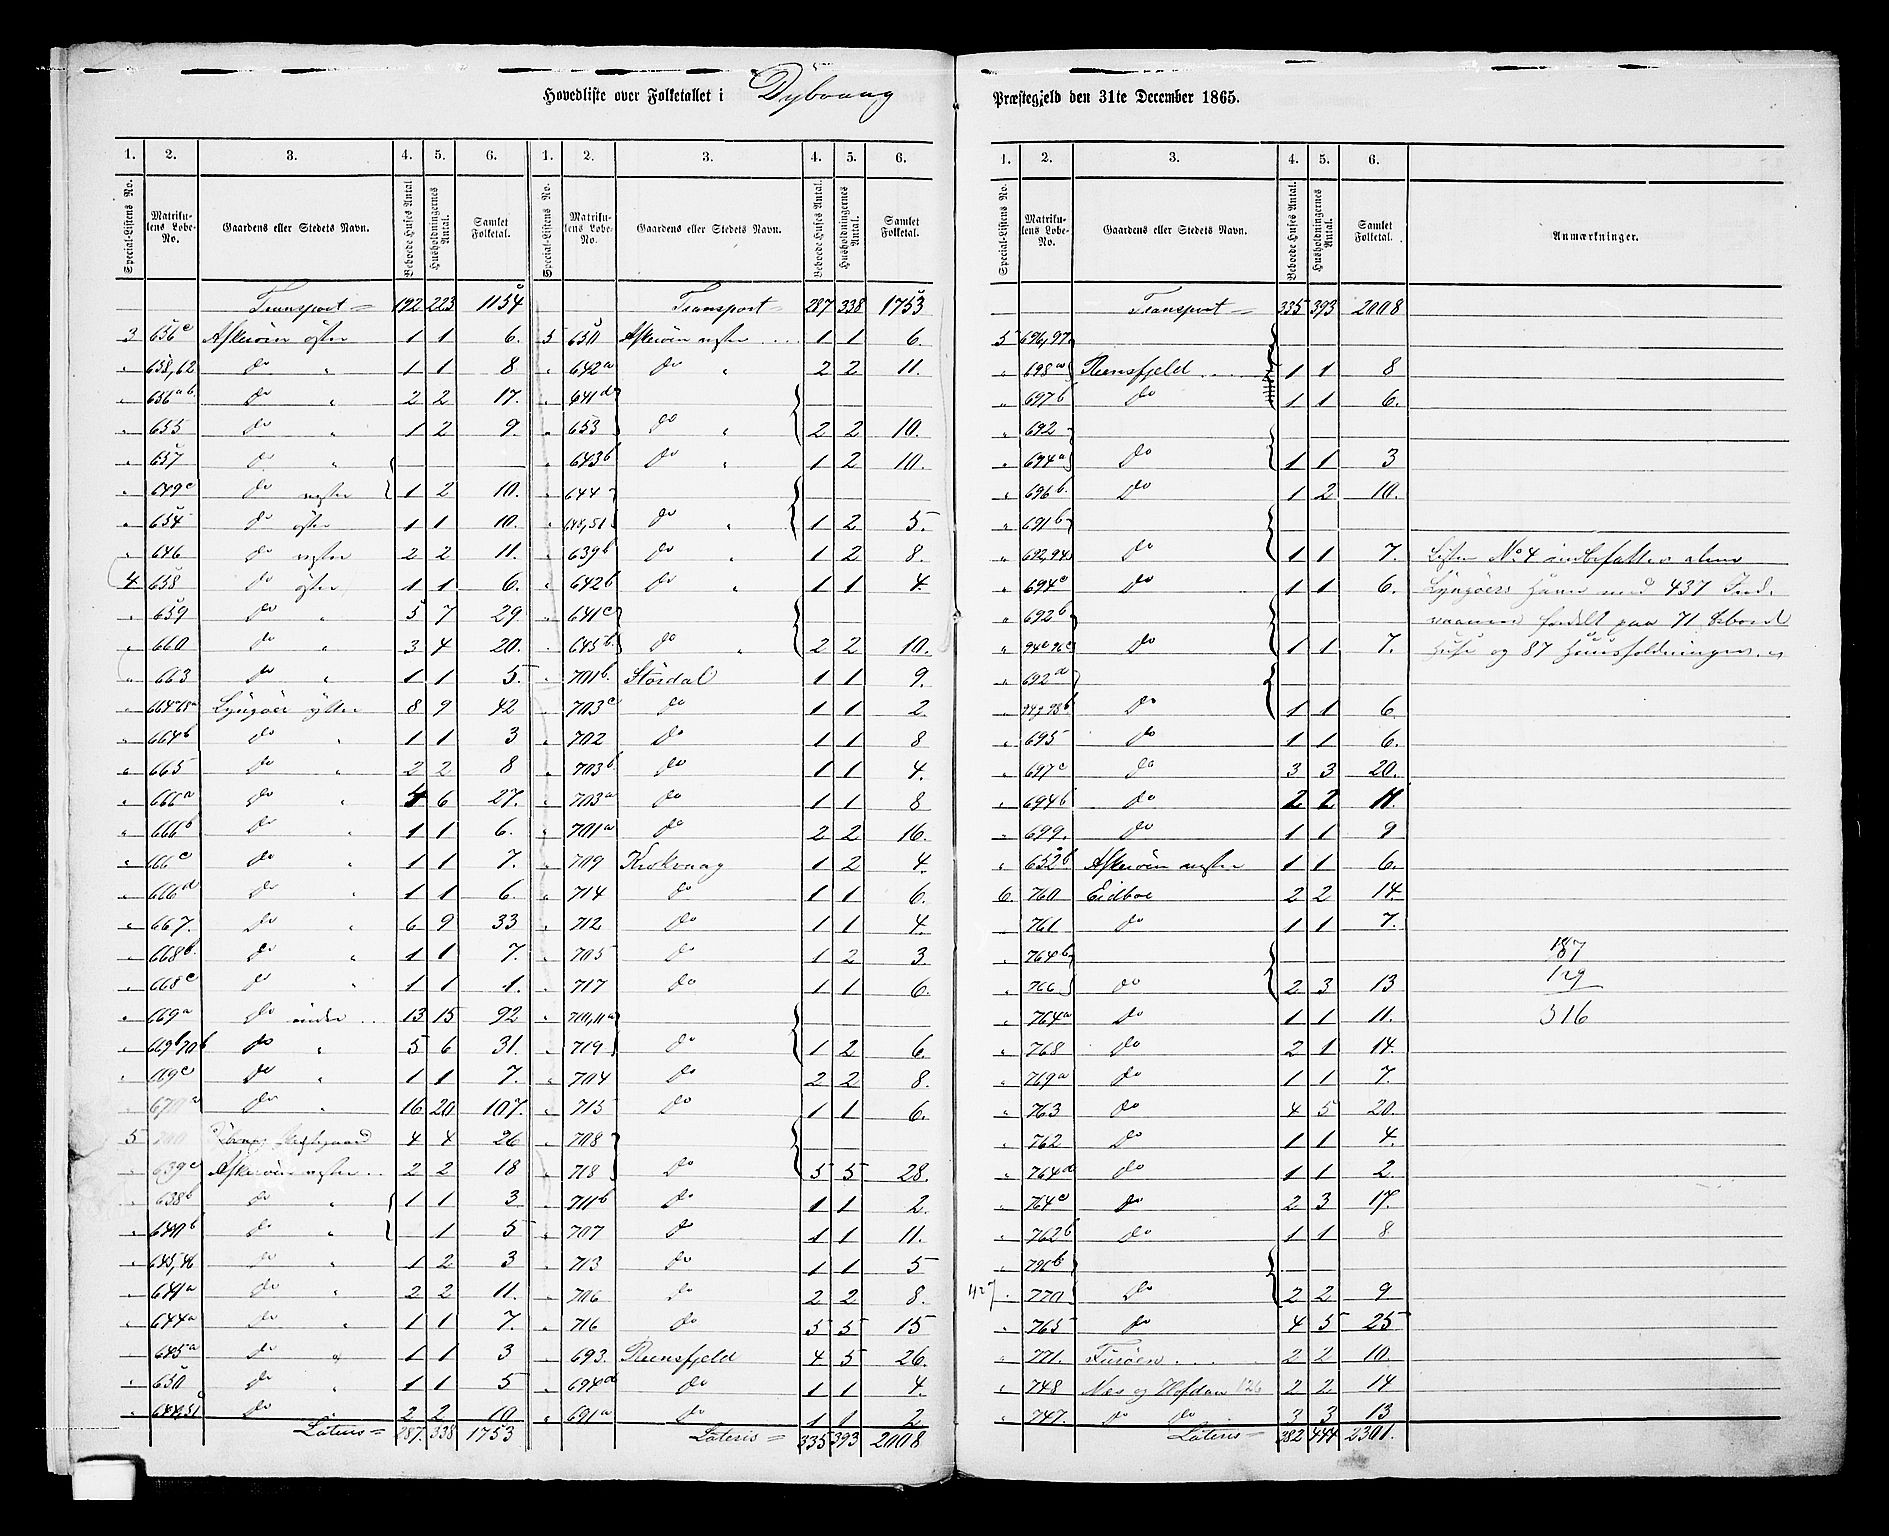 Hovedliste over Folketallet i Dybvaag Præstegjeld den 31te December 1865.
1. 2. 3. 4. 5. 6. 1. 2. 3. 4. 5. 6.
Special-Listens No. Matrikulens Løbe-No. Gaardens eller Stedets Navn. Beboede Huses Antal Husholdningernes Antal. Samlet Folketal. Special-Listens No. Matrikulens Løbe-No. Gaardens eller Stedets Navn. Beboede Huses Antal. Husholdningernes Antal. Samlet Folketal.
Transport = 192 223 1154
3 656c Askerøen øster 1 1 6.
" 658,62 do " 1 1 8
" 656ab do " 2 2 17.
" 655 do " 1 2 9.
" 657 do "
" 649c do vester 1 2 10.
" 654 do øster 1 1 10.
" 646 do vester 2 2 11.
4 658 do øster 1 1 6.
" 659 do " 5 7 29.
" 660 do " 3 4 20.
" 663 do " 1 1 5.
" Lyngøer ytter 8 9 42
" 664b do " 1 1 3
" 665 do " 2 2 8
" 666a do " 4 6 27.
" 666b do " 1 1 6.
" 666c do " 1 1 7.
" 666d do " 1 1 6.
" 667. do " 6 9 33
" 668b. do " 1 1 7.
" 668c do " 1 1 1.
" 669a do indre 13 15 92
" 669b70b do " 5 6 31.
" 669c do " 1 1 7.
" 670a do " 16 20 107.
5 700 4 4 26
" 639c Askerøen vester 2 2 18
" 638b do " 1 1 3
" 640b do " 1 5
" 645,46 do " 1 2 3
" 641a do " 2 2 11.
" 644a do " 1 1 7.
" 645a do " 1 1 3
" 650 do " 1 1 5
" 644,51 do " 2 2 10
Lateris = 287. 338 1753
Transport 287 338 1753
5 650 Askerøen vester 1 1 6.
" 642a do " 2 2 11.
" 641d
" 653 do " 2 2 10.
" 643b do " 1 2 10.
" 644
" 645,51 do " 1 2 5.
" 639b do " 1 2 8.
" 642b do " 1 1 4.
" 641c
" 645b do " 2 2 10.
" 701b. Stordal 1 1 9.
" 703c do 1 1 2.
" 702 do 1 1 8
" 703b do 1 1 4.
" 703a do 1 1 8
" 701a do 2 2 16.
" 709 Krokvaag 1 2 4.
" 714 do 1 1 6.
" 712 do 1 1 4.
" 705 do 1 2 3
" 717 do 1 1 6.
" 710,11a
" 719 do 1 2 6.
" 704 do 2 2 8.
" 715 do 1 1 6.
" 708
" 718 do 5 5 28.
" 711b do 1 1 2.
" 707 do 1 1 11.
" 713 do 1 1 5
" 706 do 2 2 8.
" 716 do 5 5 15
" 693. Reensfjeld 4 5 26.
" 694d do 1 1 4.
" 691a do 1 1 2.
Lateris = 335 393 2008
1. 2. 3. 4. 5. 6.
Special-Listens No. Matrikulens Løbe-No. Gaardens eller Stedets Navn. Beboede Huses Antal. Husholdningernes Antal. Samlet Folketal. Anmærkninger.
Transport = 335 393 2008
5 696,97
" 698a Reensfjeld 1 1 8
" 697b do 1 1 6.
" 692
" 694a do 1 1 3
" 696b. do 1 2 10.
" 691b
" 692,94 do 1 1 7.
" 694c do 1 1 6.
" 692b
" 94c 96c do 1 1 7.
" 692d
" do 1 1 6.
" 695 do 1 1 6.
" 697c do 3 3 20.
" 694b do 2 2 11.
" 699. do 1 1 9
" 652b Askerøen vester 1 1 6.
6. 760 Eidboe 2 2 14.
" 761 do 1 1 7.
" 764b
" 766 do 2 3 13
" 764a do 1 1 11.
" 768 do 2 1 14.
" 769a do 1 1 7.
" 763 do 4 5 20.
" 762 do 1 1 4.
" 764d do 1 1 2.
" 764c do 2 3 17.
" 762b do 1 1 8
" 796b
427 " 770 do 2 2 9
" 765 do 4 5 25
" 771. Furøen 2 2 10.
" 748 Næs og Hofdan 126 2 2 14
" 747. do do 3 3 13
Lateris = 382 444 2301.
Listen No 4 indbefatter alene
Lyngøers Havn med 437 Ind-
vaanere fordelt paa 71 beboede
Huse og 87 Huusholdninger.
187
129
316